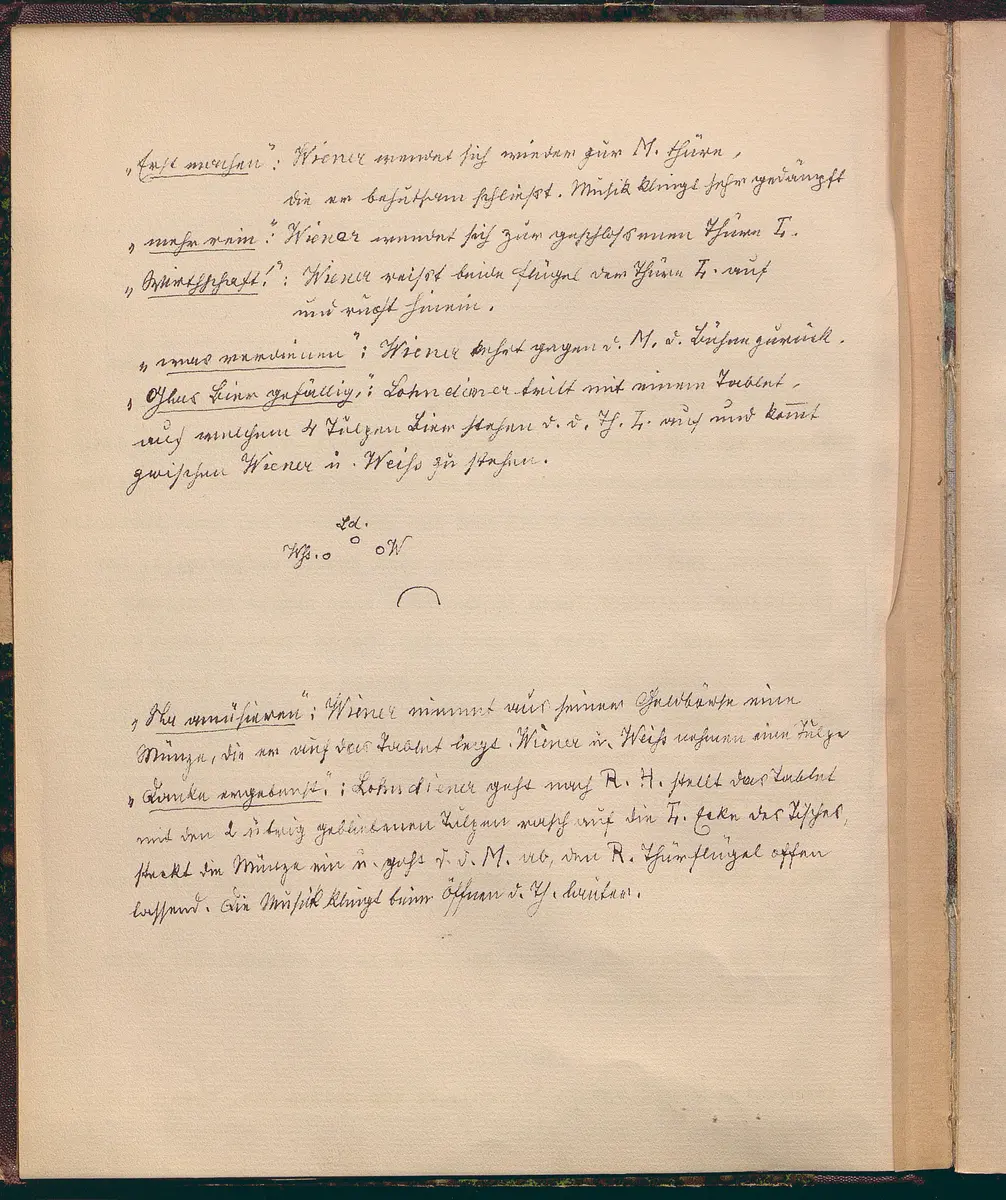 „Erst machen“: Wiener wendet sich wieder zur M. Thüre,
die er behutsam schließt. Musik klingt sehr gedämpft
„mehr rein“: Wiener wendet sich zur geschlossenen Thüre L.
„Wirthschaft!“: Wiener reißt beide Flügel der Thüre L. auf
und ruft hinein.
„was verdienen“: Wiener kehrt gegen d. M. d. Bühne zurück.
„Glas Bier gefällig“: Lohndiener tritt mit einem Tablet,
auf welchem 4 Tulpen Bier stehen d. d. Th. L. auf und kom̅t
zwischen Wiener u. Weiss zu stehen.
Ld.
Wss. o o o W
„Sta amüsieren“: Wiener nimmt aus seiner Geldbörse eine
Münze, die er auf das Tablet legt. Wiener u. Weiss nehmen eine Tulpe
„Danke ergebenst“: Lohndiener geht nach R. H. stellt das Tablet
mit den 2 übrig gebliebenen Tulpen rasch auf die L. Ecke des Tisches,
steckt die Münze ein u. geht d. d. M. ab, den R. Thürflügel offen
lassend. Die Musik klingt beim Öffnen d. Th. lauter.